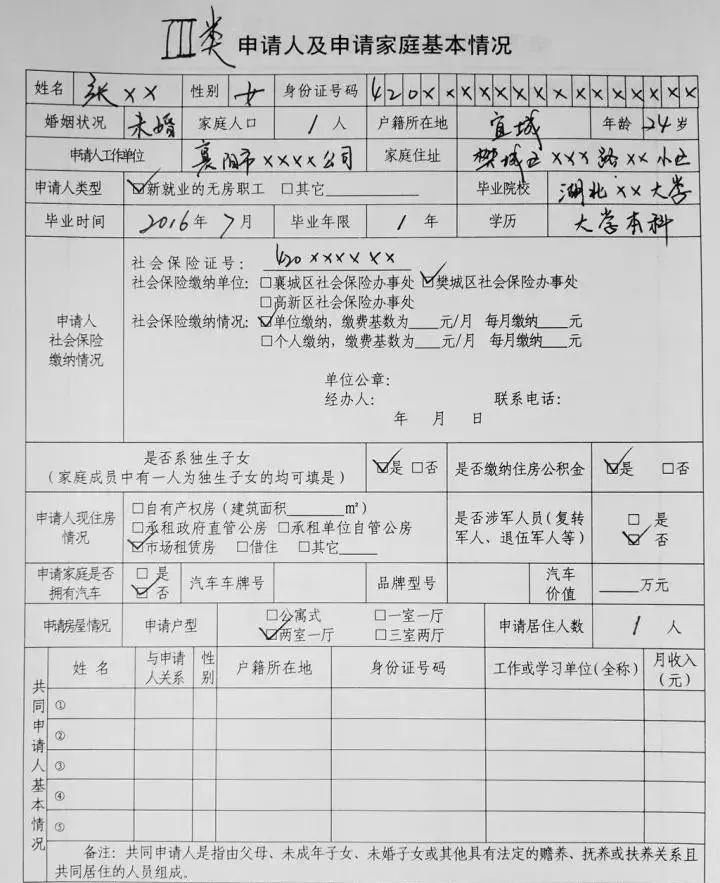 III类 申请人及申请家庭基本情况
姓名 张×× 性别 女 身份证号码 420×××××××××××××××
婚姻状况 未婚 家庭人口 1人 户籍所在地 宜城 年龄 24岁
申请人工作单位 襄阳市××××公司 家庭住址 樊城区×××路××小区
申请人类型 ☑新就业的无房职工 □其它 毕业院校 湖北××大学
毕业时间 2016年7月 毕业年限 1年 学历 大学本科
申请人社会保险缴纳情况
社会保险证号：420××××××
社会保险缴纳单位：□襄城区社会保险办事处 ☑樊城区社会保险办事处
□高新区社会保险办事处
社会保险缴纳情况：☑单位缴纳，缴费基数为____元/月 每月缴纳____元
□个人缴纳，缴费基数为____元/月 每月缴纳____元
单位公章：
经办人： 联系电话：
年 月 日
是否系独生子女
（家庭成员中有一人为独生子女的均可填是） ☑是 □否 是否缴纳住房公积金 ☑是 □否
申请人现住房情况
□自有产权房（建筑面积______㎡）
□承租政府直管公房 □承租单位自管公房
☑市场租赁房 □借住 □其它_____
是否涉军人员（复转军人、退伍军人等） □ 是 ☑ 否
申请家庭是否拥有汽车 □ 是 ☑ 否 汽车车牌号 品牌型号 汽车价值 ____万元
申请房屋情况 申请户型 □公寓式 □一室一厅
☑两室一厅 □三室两厅
申请居住人数 1 人
共同申请人基本情况
姓名 与申请人关系 性别 户籍所在地 身份证号码 工作或学习单位（全称） 月收入（元）
①
②
③
④
⑤
备注：共同申请人是指由父母、未成年子女、未婚子女或其他具有法定的赡养、抚养或扶养关系且
共同居住的人员组成。